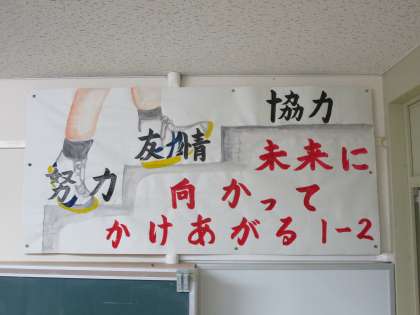 努力
友情
協力
未来に
向かって
かけあがる 1-2